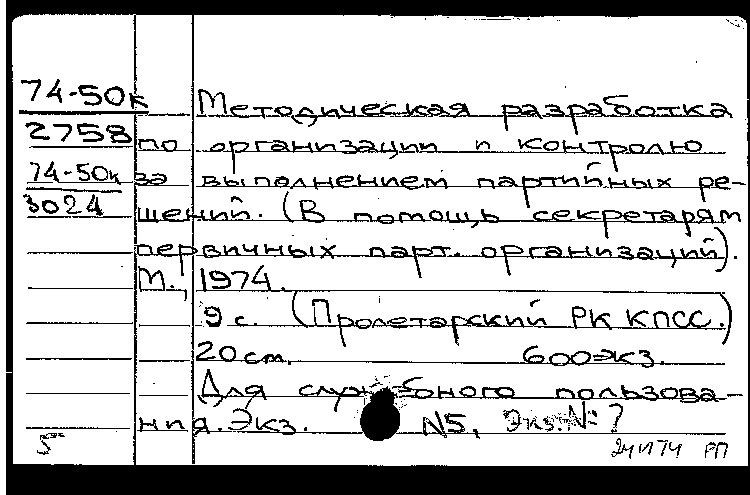 74-50к
2758
74-50к
3024
Методическая разработка
по организации и контролю
за выполнением партийных ре-
шений. (В помощь секретарям
первичных парт. организаций).
М., 1974.
9 с. (Пролетарский РК КПСС.)
20 см. 600 экз.
Для служебного пользова-
ния. Экз. N5, Экз. №7
5 РП